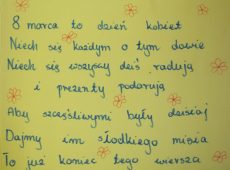 8 marca to dzień kobiet
Niech się każdym o tym dowie
Niech się wszyscy dziś radują
i prezenty podarują
Aby szczęśliwymi były dzisiaj
Dajmy im słodkiego misia
To już koniec tego wiersza